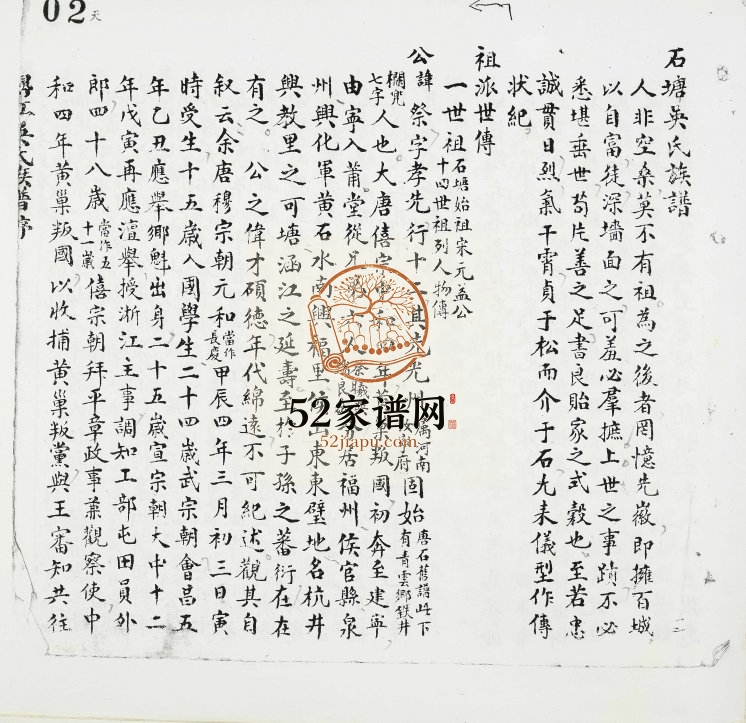 02天
石塘吳氏族譜
人非空桑莫不有祖為之後者罔憶先徽即擁百城
以自富徒深墻面之可羞必羣摭上世之事蹟不必
悉堪垂世苟片善之足書良貽家之式穀也至若忠
誠貫日烈氣干霄貞于松而介于石尤未儀型作傳
狀紀
祖派世傳
一世祖 石塘始祖宋元益公 十四世祖列人物傳
公諱祭字孝先行十 其先光州 屬河南 府固始 唐石舊譜此下 有青雲鄉鉄井
欄兜 七字 人也大唐僖宗 和四年 叛國初奔至建寧
由寧入莆堂從兄 十 人 居福州侯官縣泉
州興化軍黃石水南興福里 東東璧地名杭井
興教里之可塘涵江之延壽至於子孫之蕃衍在在
有之 公之偉才碩德年代綿遠不可紀述觀其自
叙云余唐穆宗朝元和 當作 長慶 甲辰四年三月初三日寅
時受生十五歲入國學生二十四歲武宗朝會昌五
年乙丑應舉鄉魁出身二十五歲宣宗朝大中十二
年戊寅再應澶舉授浙江主事調知工部屯田員外
郎四十八歲 當作五 十一歲 僖宗朝拜平章政事兼觀察使中
和四年黃巢叛國以收捕黃巢叛黨與王審知共往
吳氏族譜序
52家谱网
52jiapu.com